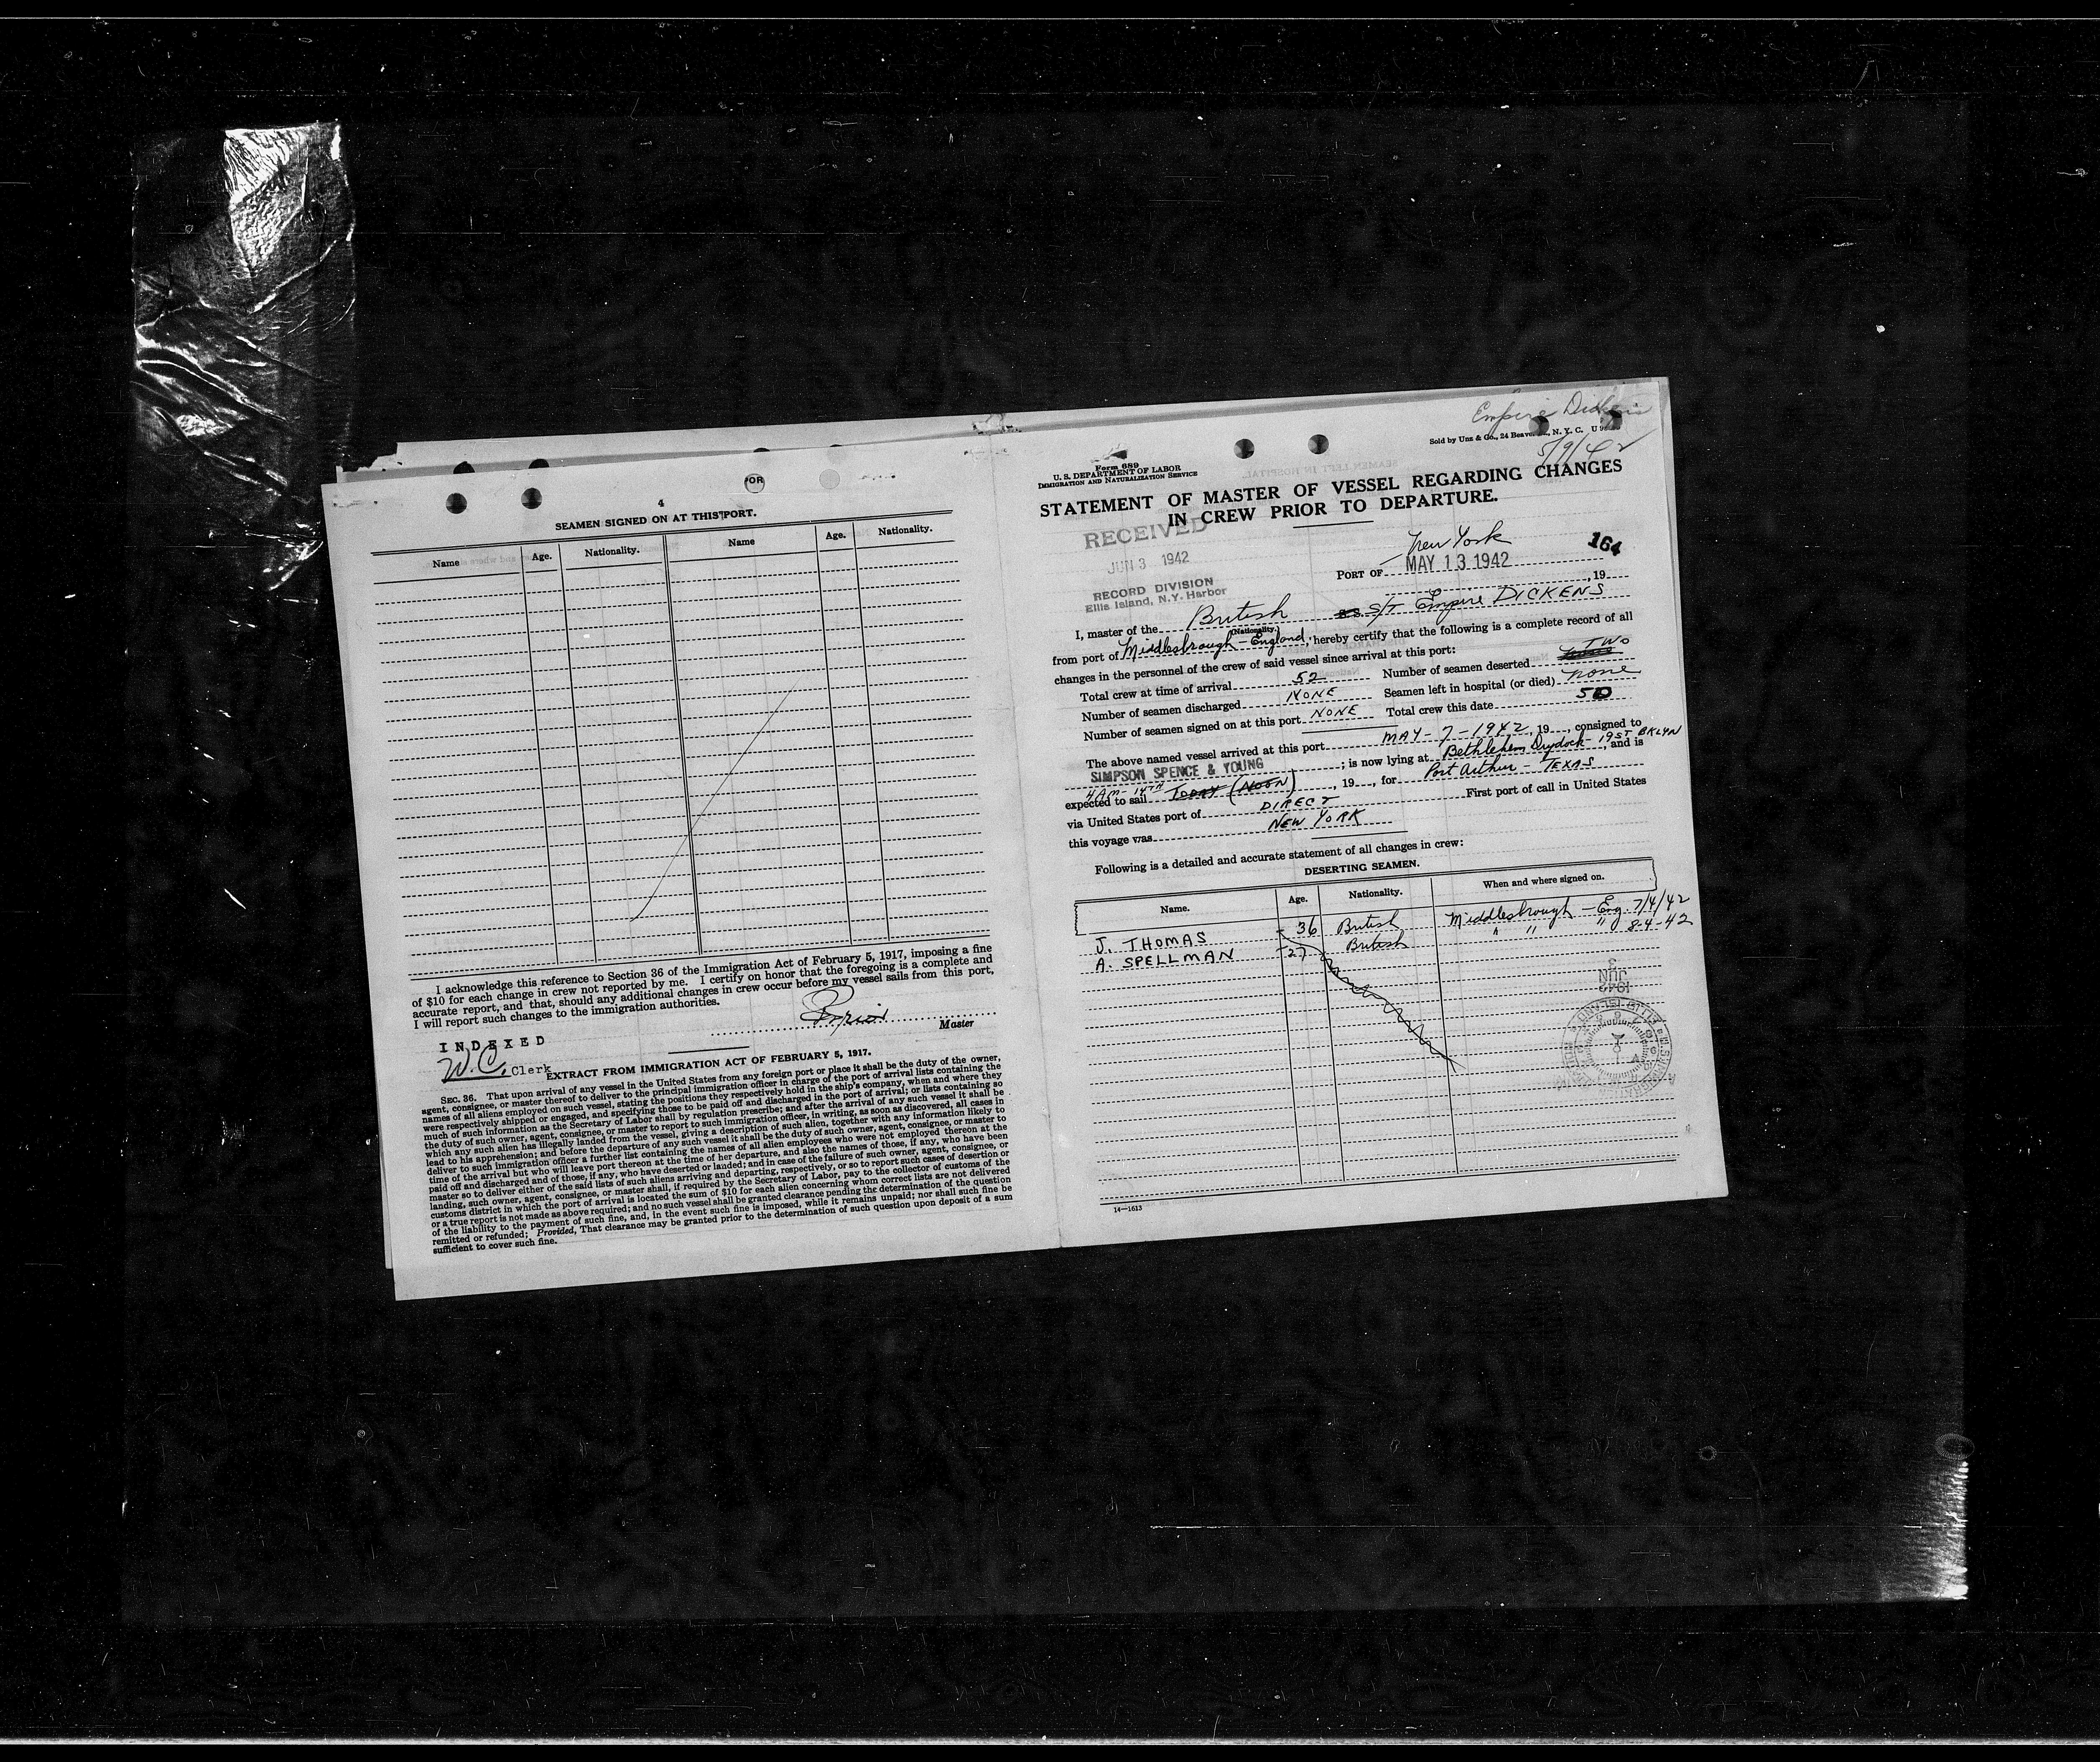 4
SEAMEN SIGNED ON AT THIS PORT.
Name Age. Nationality. Name Age. Nationality.
I acknowledge this reference to Section 36 of the Immigration Act of February 5, 1917, imposing a fine
of $10 for each change in crew not reported by me. I certify on honor that the foregoing is a complete and
accurate report, and that, should any additional changes in crew occur before my vessel sails from this port,
I will report such changes to the immigration authorities.
Master
INDEXED
W.C. Clerk
EXTRACT FROM IMMIGRATION ACT OF FEBRUARY 5, 1917.
SEC. 36. That upon arrival of any vessel in the United States from any foreign port or place it shall be the duty of the owner,
agent, consignee, or master thereof to deliver to the principal immigration officer in charge of the port of arrival lists containing the
names of all aliens employed on such vessel, stating the positions they respectively hold in the ship's company, when and where they
were respectively shipped or engaged, and specifying those to be paid off and discharged in the port of arrival; or lists containing so
much of such information as the Secretary of Labor shall by regulation prescribe; and after the arrival of any such vessel it shall be
the duty of such owner, agent, consignee, or master to report to such immigration officer, in writing, as soon as discovered, all cases in
which any such alien has illegally landed from the vessel, giving a description of such alien, together with any information likely to
lead to his apprehension; and before the departure of any such vessel it shall be the duty of such owner, agent, consignee, or master to
deliver to such immigration officer a further list containing the names of all alien employees who were not employed thereon at the
time of the arrival but who will leave port thereon at the time of her departure, and also the names of those, if any, who have been
paid off and discharged and of those, if any, who have deserted or landed; and in case of the failure of such owner, agent, consignee, or
master so to deliver either of the said lists of such aliens arriving and departing, respectively, or so to report such cases of desertion or
landing, such owner, agent, consignee, or master shall, if required by the Secretary of Labor, pay to the collector of customs of the
customs district in which the port of arrival is located the sum of $10 for each alien concerning whom correct lists are not delivered
or a true report is not made as above required; and no such vessel shall be granted clearance pending the determination of the question
of the liability to the payment of such fine, and, in the event such fine is imposed, while it remains unpaid; nor shall such fine be
remitted or refunded; Provided, That clearance may be granted prior to the determination of such question upon deposit of a sum
sufficient to cover such fine.
Empire Dickens
5/9/42
Sold by Unz & Co., 24 Beaver St., N. Y. C.
Form 689
U. S. DEPARTMENT OF LABOR
IMMIGRATION AND NATURALIZATION SERVICE
STATEMENT OF MASTER OF VESSEL REGARDING CHANGES
IN CREW PRIOR TO DEPARTURE.
RECEIVED
JUN 3 1942
RECORD DIVISION
Ellis Island, N.Y. Harbor
164
PORT OF New York MAY 13 1942, 19
I, master of the British S/T Empire DICKENS
(Nationality.)
from port of Middlesbrough - England, hereby certify that the following is a complete record of all
changes in the personnel of the crew of said vessel since arrival at this port:
Total crew at time of arrival 52 Number of seamen deserted TWO
Number of seamen discharged NONE Seamen left in hospital (or died) none
Number of seamen signed on at this port NONE Total crew this date 50
The above named vessel arrived at this port MAY - 7 - 1942, 19, consigned to
SIMPSON SPENCE & YOUNG ; is now lying at Bethlehem Drydock - 19 ST BKLYN, and is
expected to sail 4 AM - 14TH TODAY (NOON), 19, for Port Arthur - TEXAS
via United States port of DIRECT First port of call in United States
this voyage was NEW YORK
Following is a detailed and accurate statement of all changes in crew:
DESERTING SEAMEN.
Name. Age. Nationality. When and where signed on.
J. THOMAS - 36 British Middlesbrough - Eng. 7/4/42
A. SPELLMAN - 27 British " " " 8-4-42
JUN 3
1942
14—1613